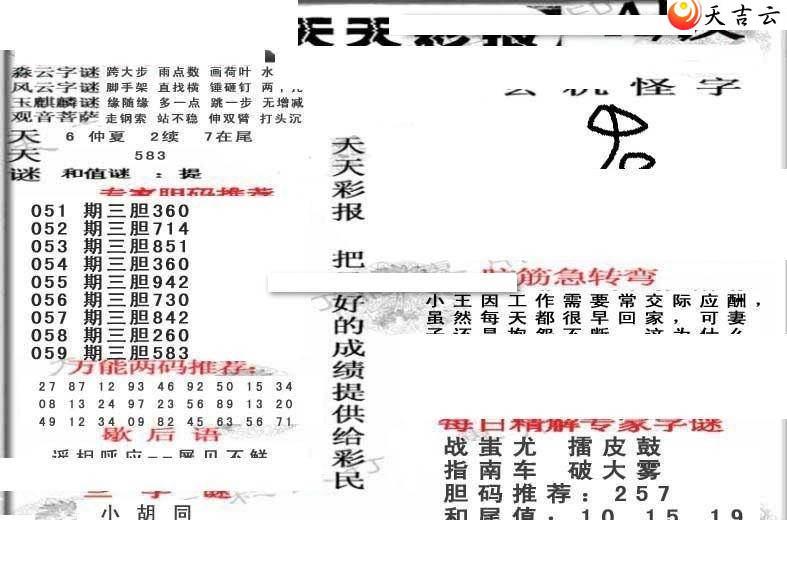 天吉云
天天彩报
玄机怪字
森云字谜 跨大步 雨点数 画荷叶 水
风云字谜 脚手架 直找横 锤砸钉 两
玉麒麟谜 缘随缘 多一点 跳一步 无增减
观音菩萨 走钢索 站不稳 伸双臂 打头沉
天 6 仲夏 2续 7在尾
天 583
谜 和值谜 ：提
专家胆码推荐
051 期三胆360
052 期三胆714
053 期三胆851
054 期三胆360
055 期三胆942
056 期三胆730
057 期三胆842
058 期三胆260
059 期三胆583
万能两码推荐：
27 87 12 93 46 92 50 15 34
08 13 24 97 23 56 89 13 20
49 12 34 09 82 45 63 56 71
歇后语
遥相呼应--屡见不鲜
三字谜
小胡同
天天彩报 把 好的成绩提供给彩民
脑筋急转弯
小王因工作需要常交际应酬，
虽然每天都很早回家，可妻
子还是抱怨不断，这为什么
每日精解专家字谜
战蚩尤 擂皮鼓
指南车 破大雾
胆码推荐：257
和尾值：10 15 19